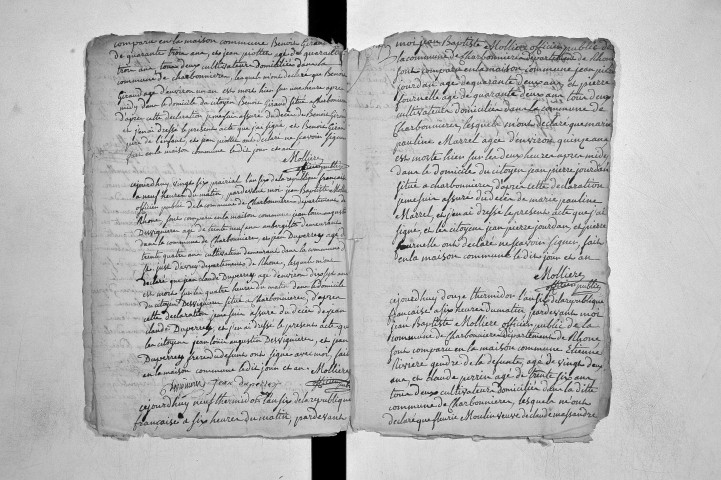 compara en la maison commune Benoit Giraud
de quarante trois ans, et jean piottet agé de quarante
trois ans, tous deux cultivateur domiciliés dans la
commune de charbonnieres, lesquels m'ont déclaré que Benoit
Giraud agé d'environ un an est mort hier sur une heure après
midy dans le domicile du citoyen Benoit Giraud situé a charbonnieres
d'après cette declaration je me suis assuré du décès de Benoit Giraud
et j'en ai dressé le présent acte que j'ai signé, et Benoit Giraud
père de l'enfant, et jean piottet m'ont déclaré ne savoir signer
fait en la maison commune ledit jour et an
Mollière
officier public
cejourdhuy vingt six prairial l'an six de la republique francaise
a neuf heures du matin pardevant moi jean Baptiste Mollière
officier public de la commune de Charbonnieres département de
Rhône, sont comparu en la maison commune jean louis augustin
Dessignieux agé de trente neuf ans aubergiste demeurant
dans la commune de Charbonnieres, et jean Duperrey agé de
trente quatre ans cultivateur demeurant dans la commune
de département de Rhône, lesquels m'ont
déclaré que jean claude Duperrey agé d'environ dix sept ans
est mort sur les quatre heures du matin dans le domicile
du citoyen Dessignieux situé a Charbonnieres, d'après
cette declaration je me suis assuré du décès de jean
claude Duperrey, et j'en ai dressé le présent acte que
le citoyen jean louis augustin Dessignieux, et jean
Duperrey frere du defunt ont signés avec moi, fait
en la maison commune ledit jour et an. Mollière
jean duperrey officier public
cejourdhuy neuf thermidor l'an six de la republique
française a six heures du matin, pardevant
moi jean Baptiste Mollière officier public de
la commune de Charbonnieres département de Rhône
sont comparu en la maison commune jean pierre
jourdan agé de quarante deux ans, et pierre
fournelle agé de quarante deux ans tous deux
cultivateurs domiciliés dans la commune de
Charbonnieres, lesquels m'ont declaré que marie
pauline Marrel agée d'environ quinze ans
est morte hier sur les deux heures apres midy
dans le domicile du citoyen jean pierre jourdan
situé a charbonnieres d'après cette declaration
je me suis assuré du décès de marie pauline
Marrel, et j'en ai dressé le present acte que j'ai
signé, et le citoyen jean pierre jourdan, et pierre
fournelle ont declaré ne savoir signer, fait
en la maison commune ledit jour et an
Mollière
officier public
cejourdhuy douze thermidor l'an six de la republique
française a six heures du matin, pardevant moi
jean Baptiste Mollière officier public de la
commune de Charbonnieres département de Rhône
sont comparu en la maison commune Etienne
Riviere gendre de la defunte, agé de vingt deux
ans, et claude perrin agé de trente six ans
tous deux cultivateurs domiciliés dans la ditte
commune de Charbonnieres, lesquels m'ont
declaré que fleurie Moulin veuve de claude massandre